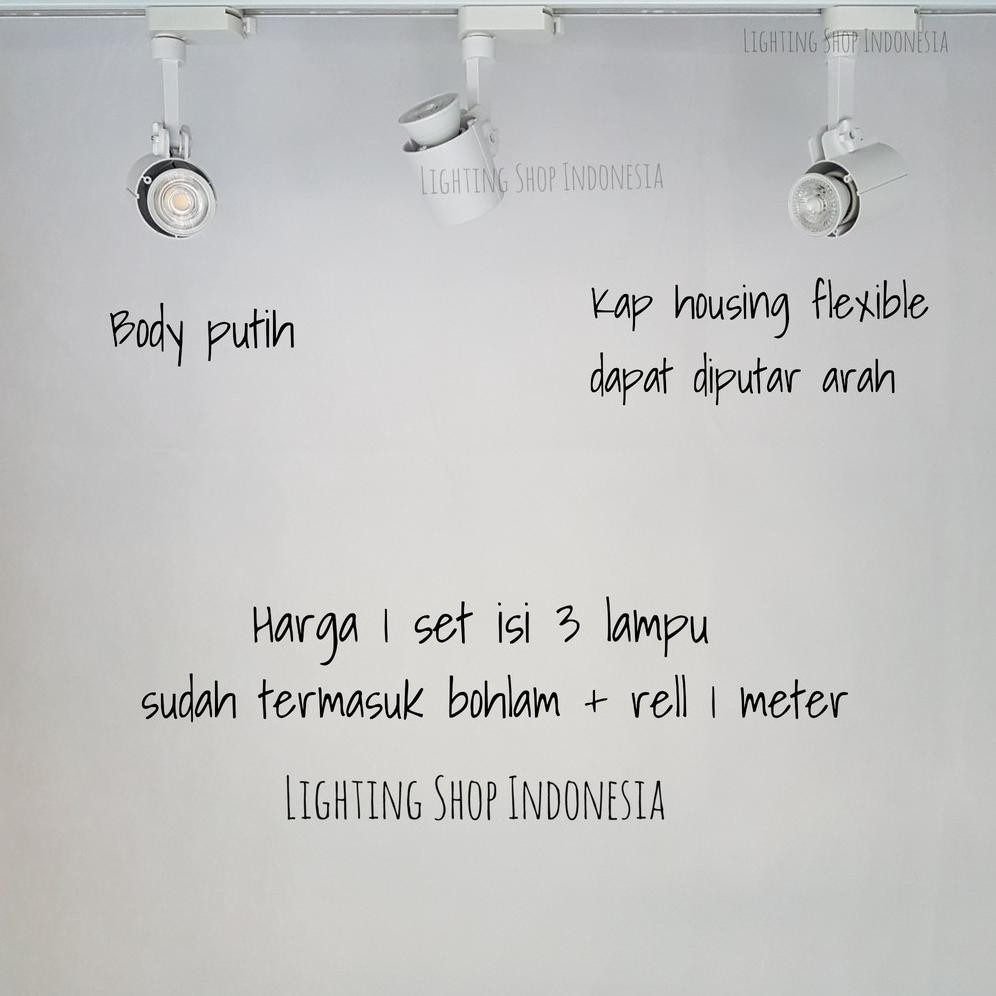 LIGHTING SHOP INDONESIA
LIGHTING SHOP INDONESIA
Body putih
Kap housing flexible
dapat diputar arah
Harga 1 set isi 3 lampu
sudah termasuk bohlam + rell 1 meter
LIGHTING SHOP INDONESIA